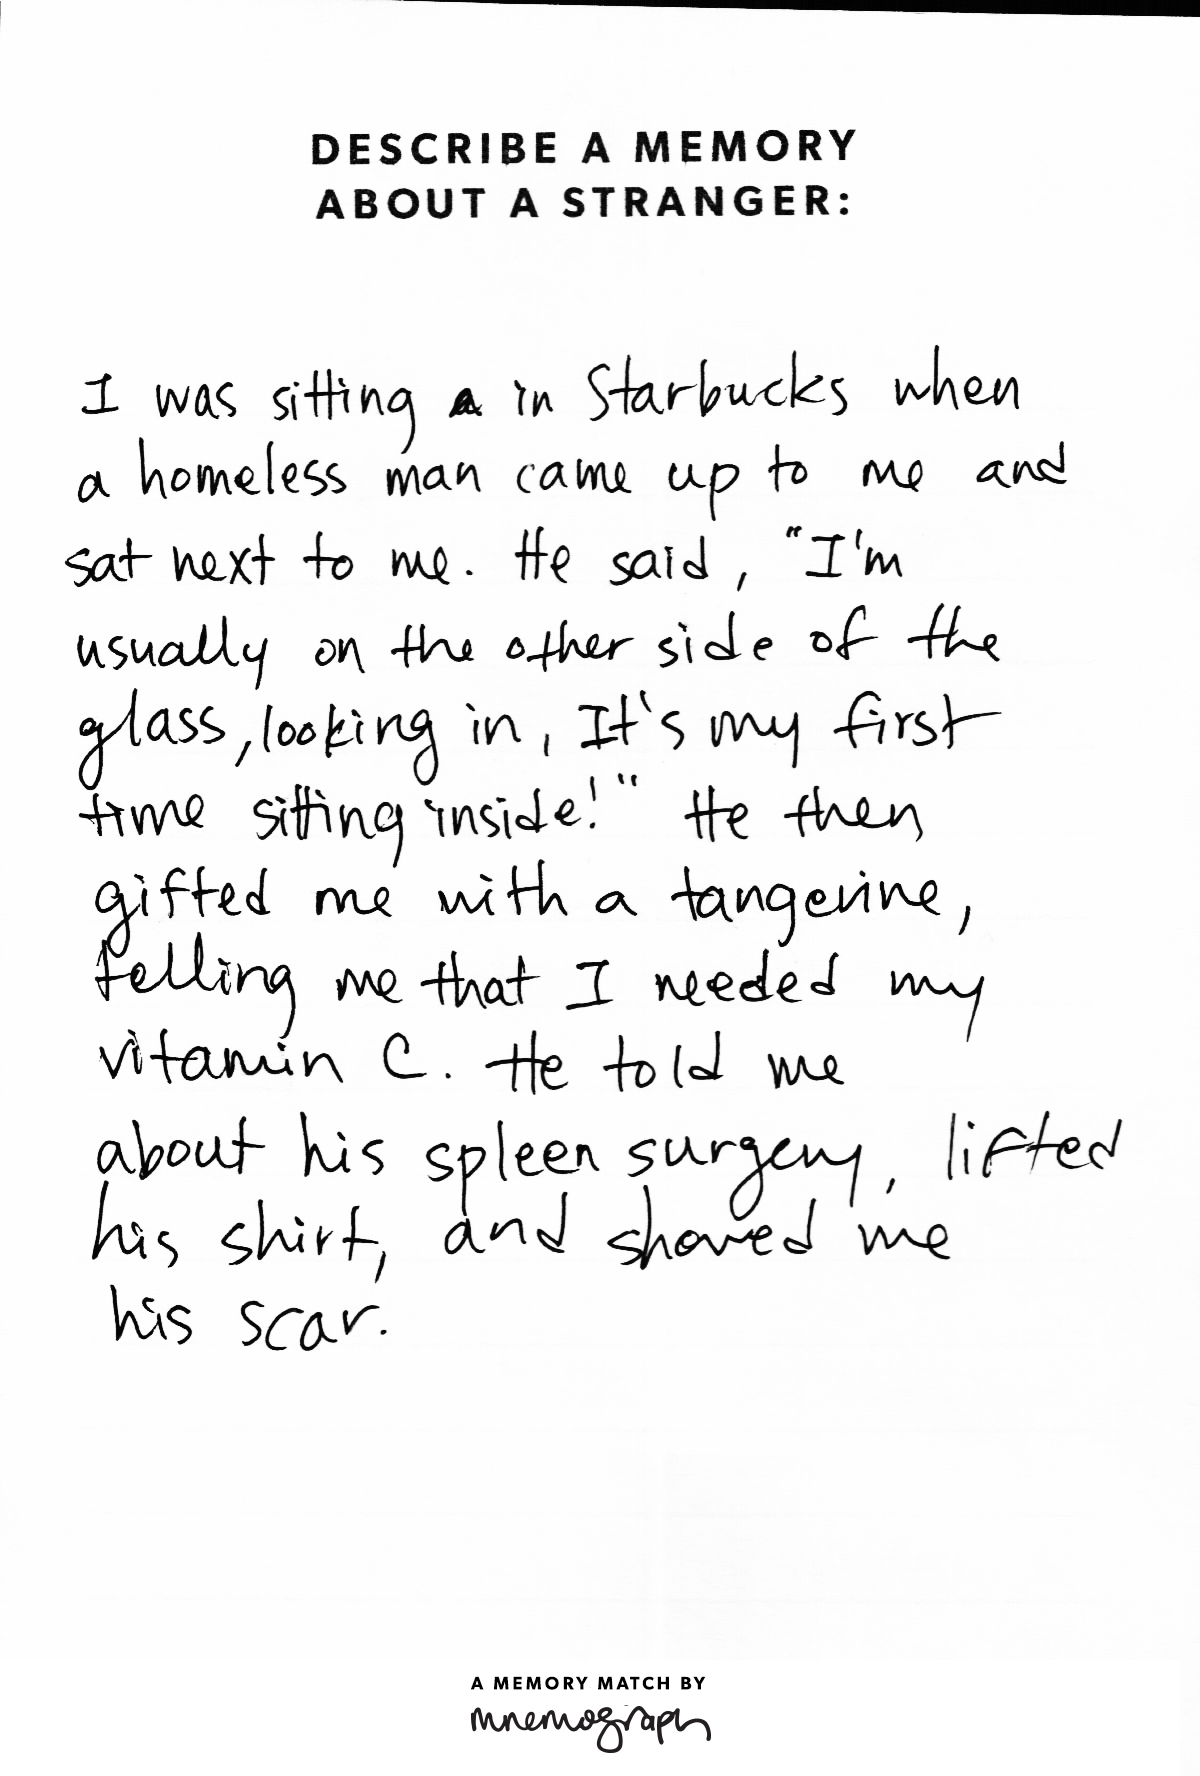 DESCRIBE A MEMORY
ABOUT A STRANGER:
I was sitting in Starbucks when
a homeless man came up to me and
sat next to me. He said, "I'm
usually on the other side of the
glass, looking in, It's my first
time sitting inside!" He then
gifted me with a tangerine,
telling me that I needed my
vitamin C. He told me
about his spleen surgery, lifted
his shirt, and showed me
his scar.
A MEMORY MATCH BY
mnemograph